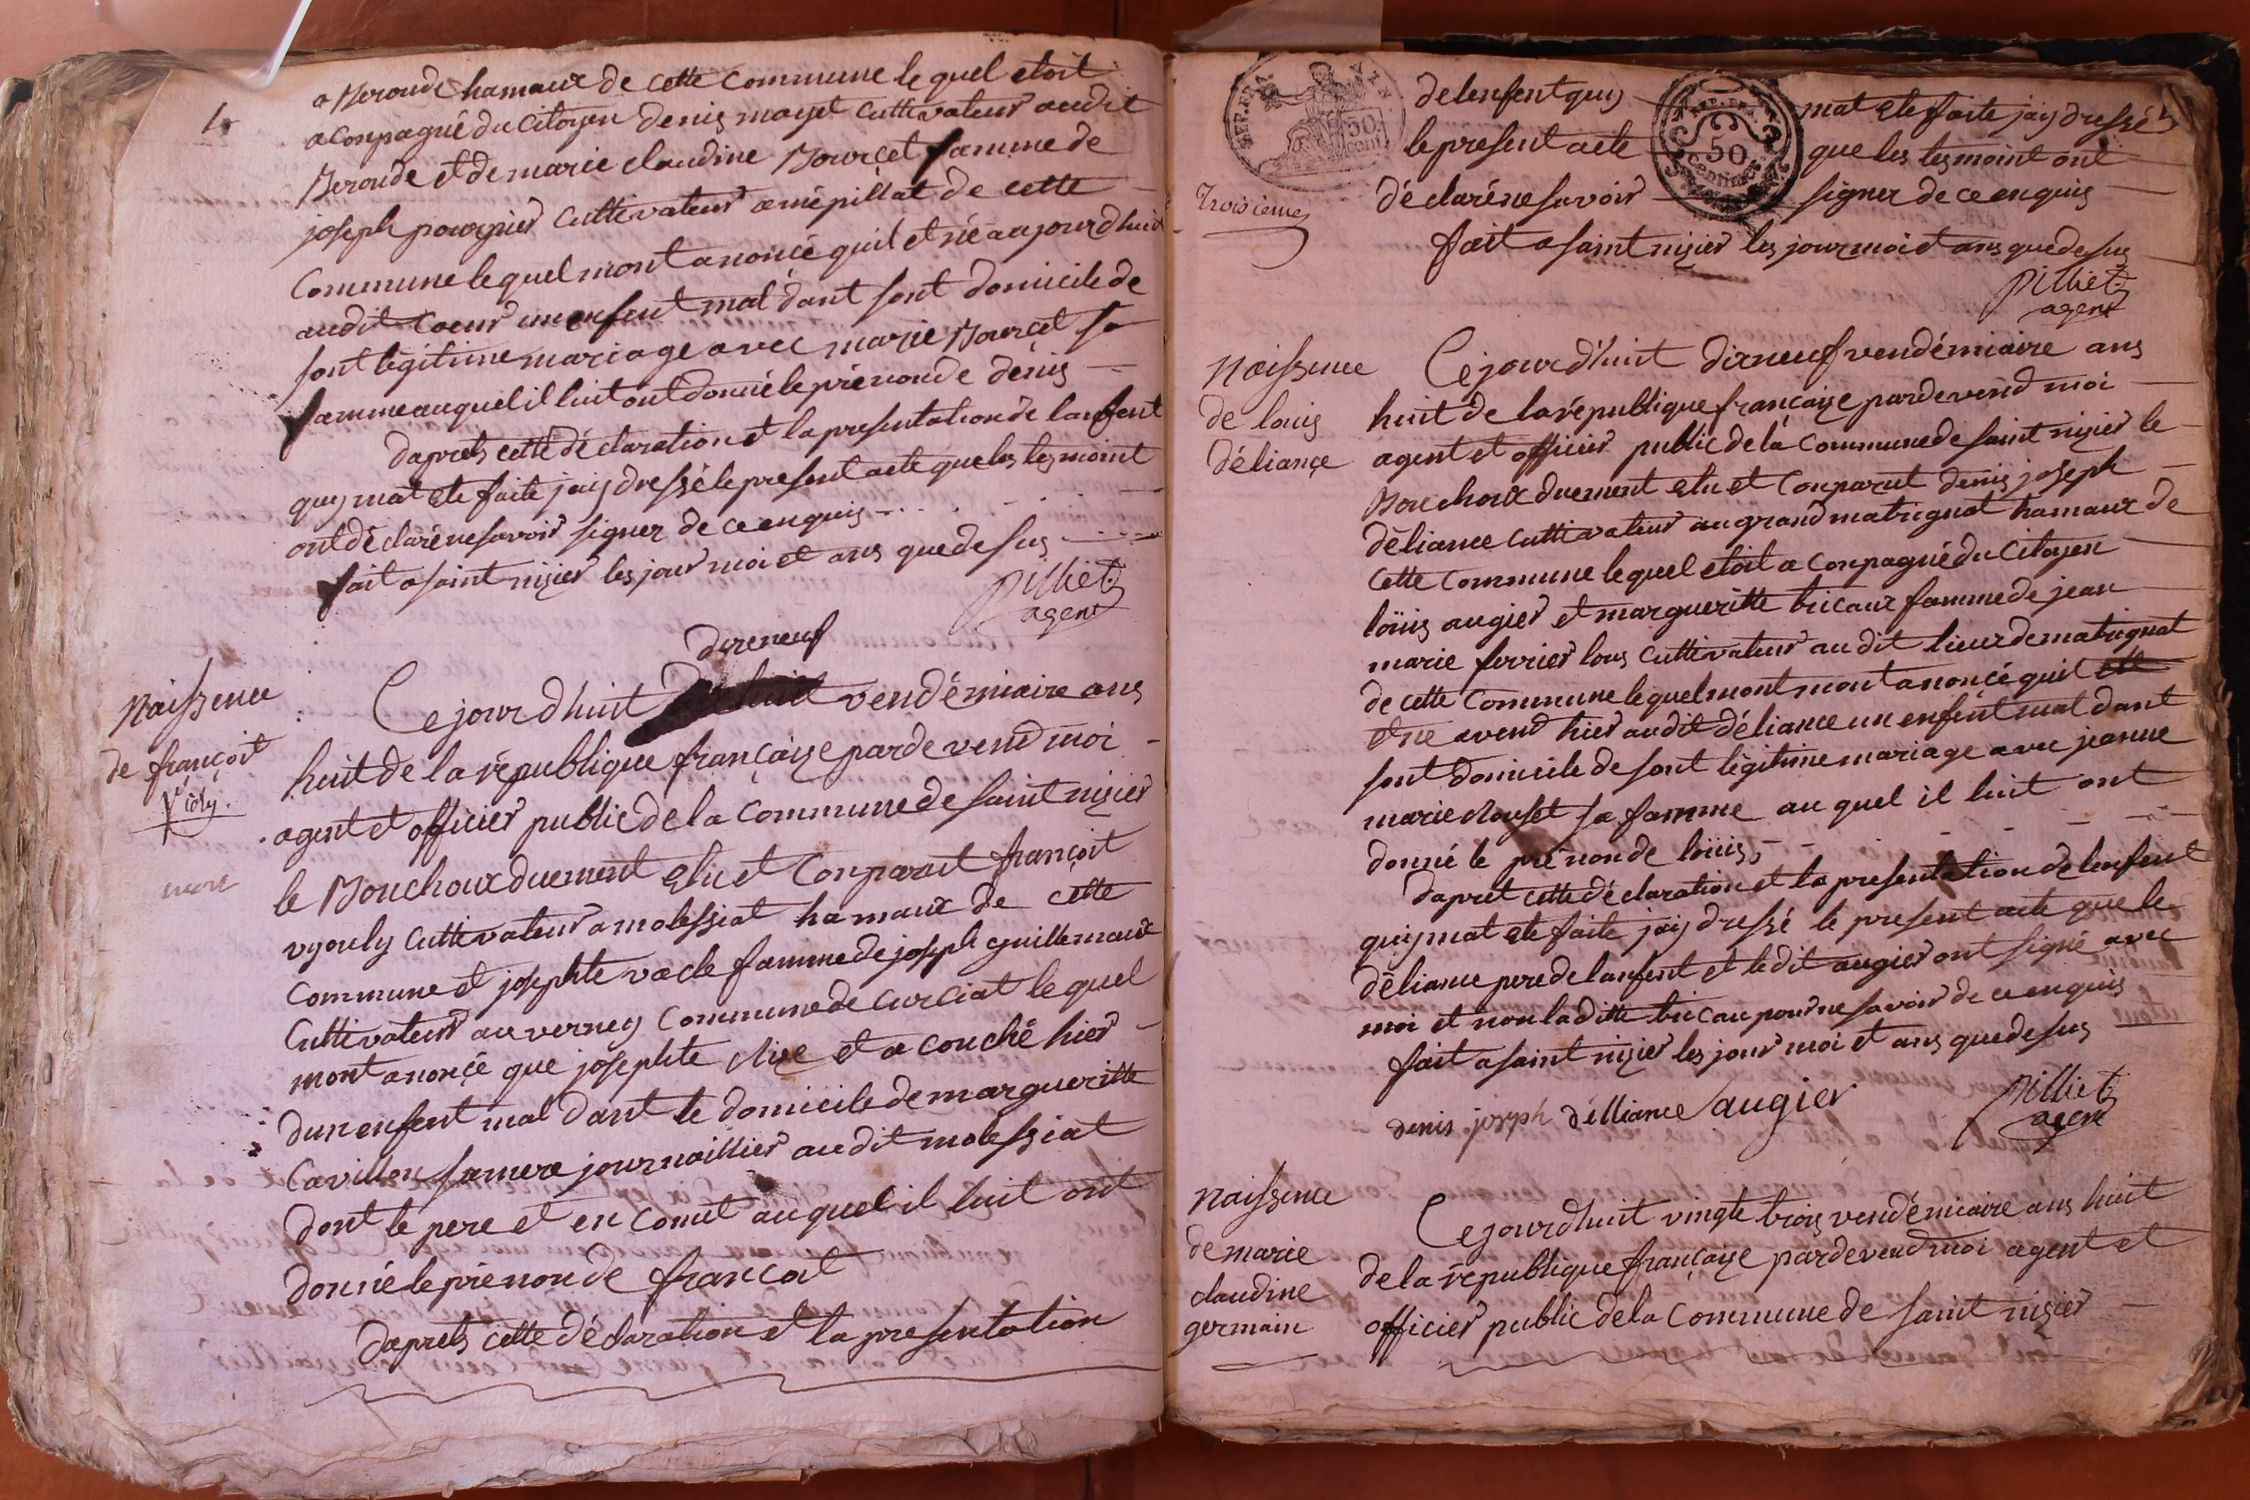 a Meroude hamaux de cette commune le quel etoit
aconpagné du citoyen denis mayet cultivateur audit
Meroude et de marie claudine Bourcet famme de
joseph cultivateur a mépillat de cette
Commune le quel mont anoncé quil et né aujourdhuit
audit un enfent mal dant sont domicile de
sont légitime mariage avec marie Bourcet sa
famme auquel il luit ont donné le prénon de dénis
daprets cette déclaration et la presentation de lanfent
quy mat ete faite jaiy dressé le present acte que les tesmoint
ont déclaré ne savoir signer de ce enquis
fait a saint nizier les jour moi et ans que desus
pilliet
agent
1
dixneuf
Naissence
de françoit
violy.
mort
Ce jourdhuit vendémiaire ans
huit de la république françaize pardevend moi
agent et officier public de la commune de saint nizier
le Bouchoux duement elu et Conparait françoit
vyouly cultivateur a molessiat hamaux de cette
commune et josephte vacle famme de joseph guillemaux
Cultivateur au verney Commune de curciat le quel
mont anonçé que josephte et a couché hier
dun enfent mal dant le domicile de margueritte
Cavillon sa mere journaillier audit molessiat
dont le pere et en conut auquel il luit ont
donné le prénon de françoit
daprets cette déclaration et la presentation
de lenfent quy mat ete faite jaiy dressé
le present acte que les tesmoint ont
déclaré ne savoir signer de ce enquis
fait a saint nizier les jour moi et ans que desus
pilliet
agent
REP. FRA.
50
centimes
Troisieme
Naissence
de louis
déliançe
Ce jourd'huit dixneuf vendémiaire ans
huit de la république françaize pardevend moi
agent et officier public de la commune de saint nizier le
Bouchoux duement elu et Conparut denis joseph
déliance cultivateur au grand matrignat hamaux de
cette commune le quel etoit a conpagné du citoyen
loüis augier et margueritte bucaux famme de jean
marie ferrier tous cultivateur au dit lieux de matrignat
de cette commune lequel mont mont anoncé quil
et ne avend hier audit déliance un enfent mal dant
sont domicile de sont légitime mariage avec jeanne
marie sa famme au quel il luit ont
donné le prénon de loüis
dapret cette déclaration et la presentation de lenfent
quiy mat ete faite jaiy dressé le present acte que le
déliance pere de lanfent et le dit augier ont signé avec
moi et non la ditte bucau pour ne savoir de ce enquis
fait a saint nizier les jour moi et ans que desus
denis joseph délliance augier
pilliet
agent
Naissence
de marie
claudine
germain
Ce jourdhuit vingte trois vendémiaire ans huit
de la république françaize pardevend moi agent et
officier public de la commune de saint nizier